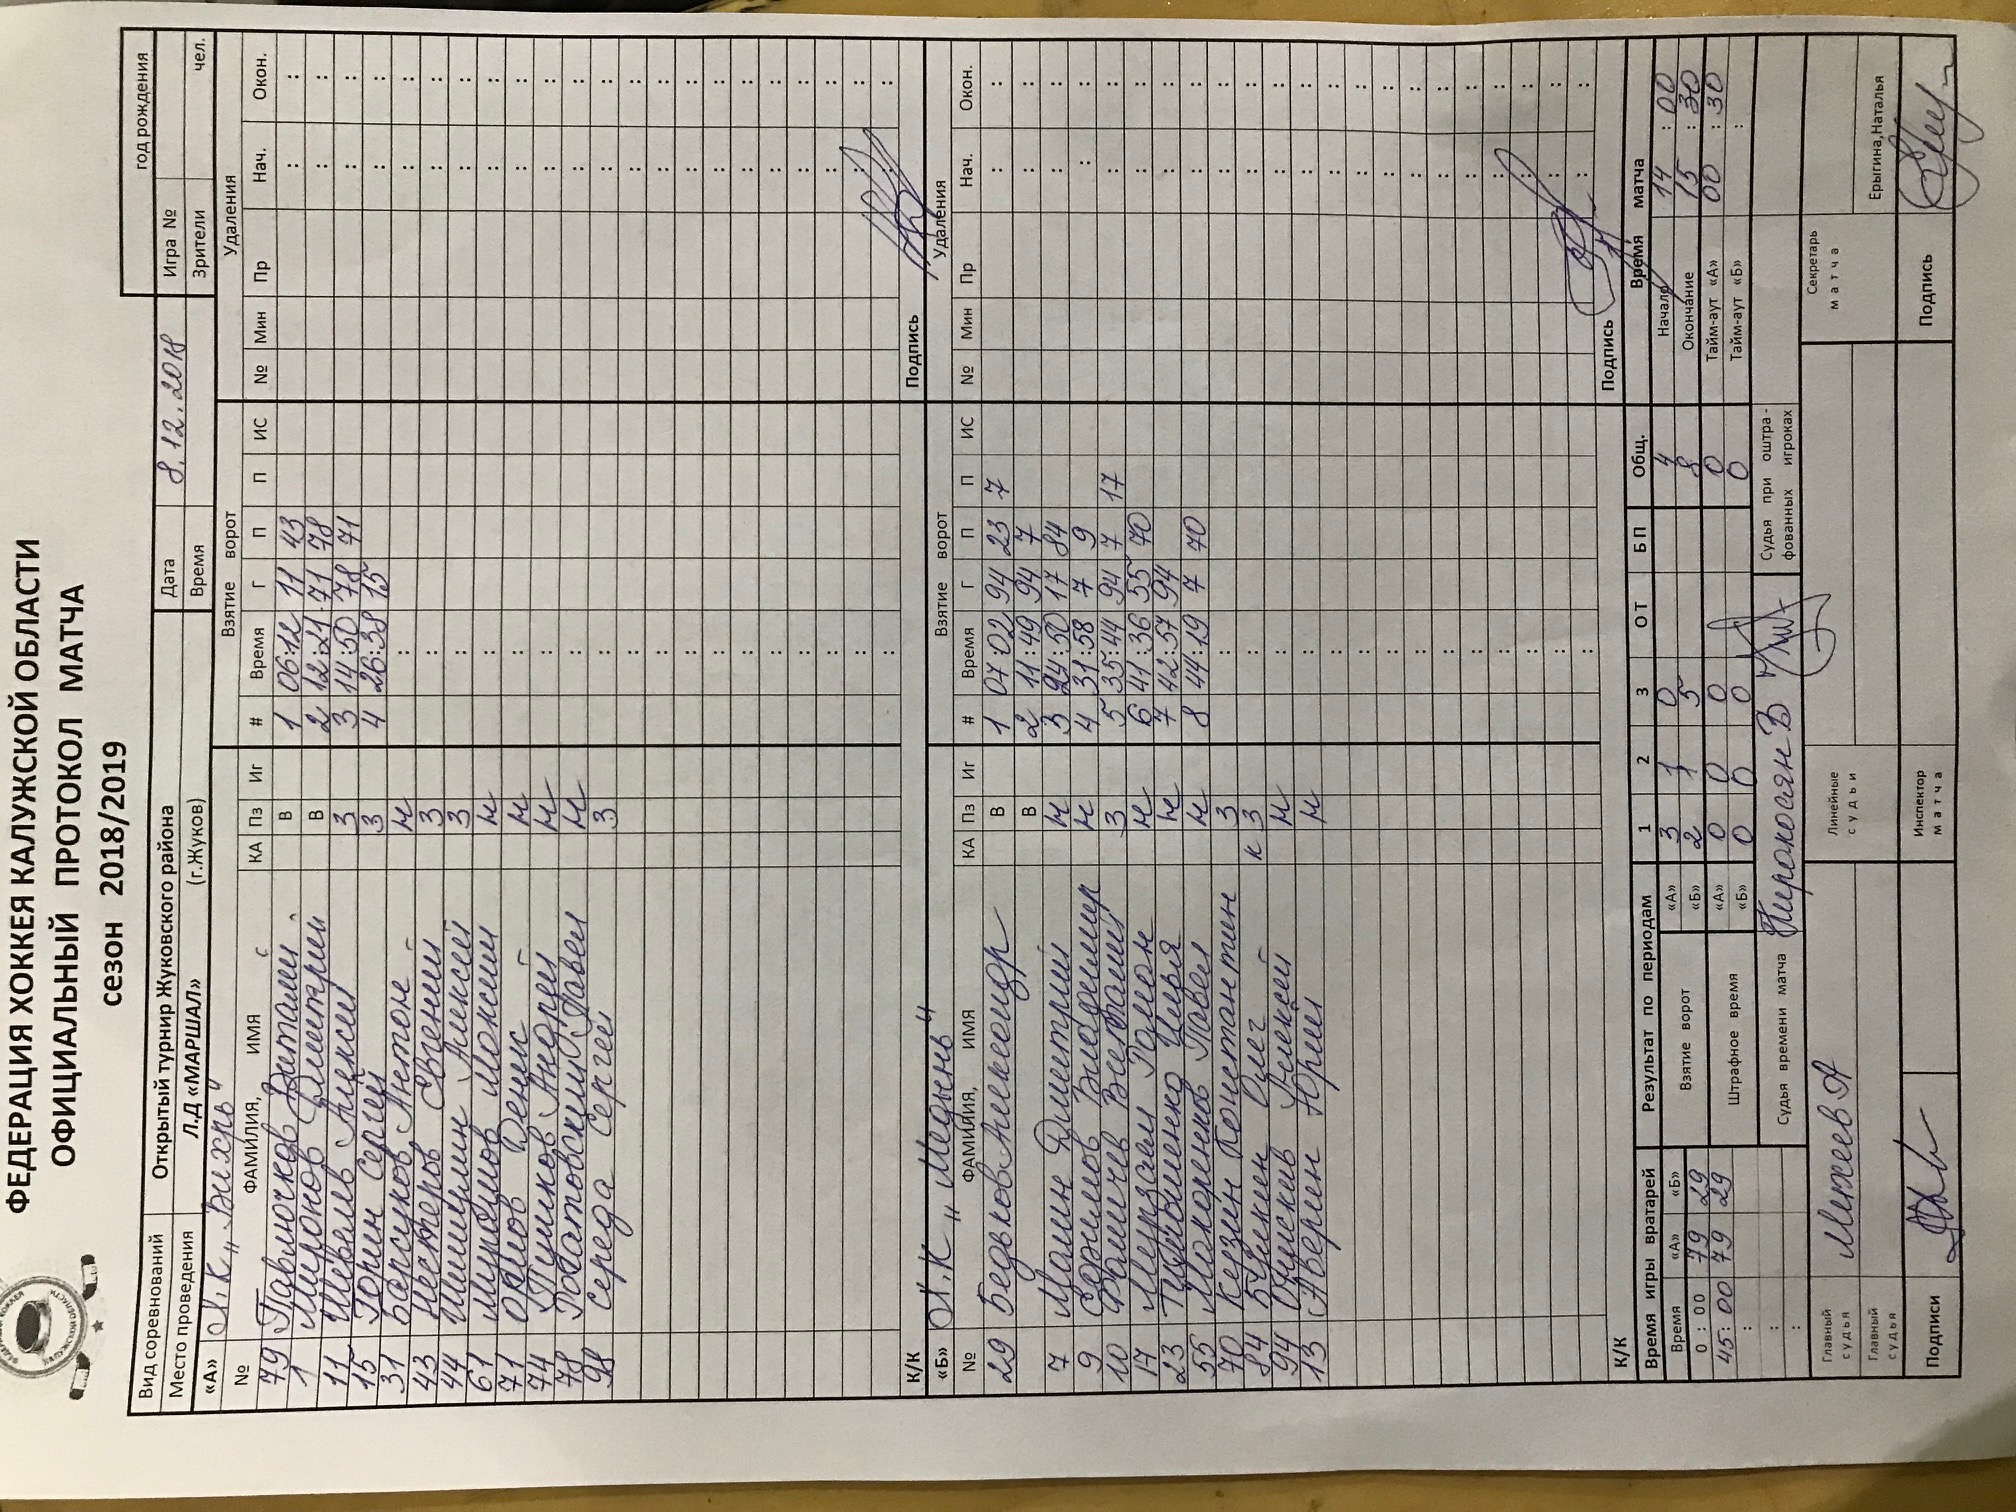 ФЕДЕРАЦИЯ ХОККЕЯ КАЛУЖСКОЙ ОБЛАСТИ
ОФИЦИАЛЬНЫЙ ПРОТОКОЛ МАТЧА
сезон 2018/2019
год рождения
Вид соревнований Открытый турнир Жуковского района Дата 8.12.2018 Игра №
Место проведения Л.Д «МАРШАЛ» (г.Жуков) Время Зрители чел.
«А» Х.К. „Вихрь" Взятие ворот Удаления
№ ФАМИЛИЯ, ИМЯ с КА Пз Иг # Время Г П П ИС № Мин Пр Нач. Окон.
79 Павлючков Виталий В 1 06:12 11 43 : :
1 Миронов Дмитрий В 2 12:21 71 78 : :
11 Шеваль Алексей З 3 14:50 78 71 : :
15 Горин Сергей З 4 26:38 15 : :
31 Барсуков Антон Н : : :
43 Нестеров Евгений З : : :
44 Шишкин Алексей З : : :
61 Муратов Максим Н : : :
71 Денис Н : : :
74 Тушков Андрей Н : : :
78 Павел Н : : :
98 Середа Сергей З : : :
К/К Подпись
«Б» Х.К „Медынь" Взятие ворот Удаления
№ ФАМИЛИЯ, ИМЯ КА Пз Иг # Время Г П П ИС № Мин Пр Нач. Окон.
29 Бедьков Александр В 1 07:02 94 23 7 : :
В 2 11:49 94 7 : :
7 Малин Дмитрий Н 3 24:50 17 84 : :
9 Владимир Н 4 31:58 7 9 : :
10 Фомичев Виталий З 5 35:44 94 7 17 : :
17 Мурзаев Роман Н 6 41:36 55 70 : :
23 Тимошенко Илья Н 7 42:57 94 : :
55 Макаренков Павел Н 8 44:19 7 70 : :
70 Кузин Константин З : : :
84 Букшен Олег К З : : :
94 Алексей Н : : :
13 Аверин Юрий Н : : :
К/К Подпись
Время игры вратарей Результат по периодам 1 2 3 ОТ БП Общ. Время матча
Время «А» «Б» Взятие ворот «А» 3 1 0 4 Начало 14 : 00
0 : 00 79 29 «Б» 2 1 5 8 Окончание 15 : 30
45 : 00 79 29 Штрафное время «А» 0 0 0 0 Тайм-аут «А» 00 : 30
: «Б» 0 0 0 0 Тайм-аут «Б» :
: Судья времени матча Киракосян В Судья при оштра-
: фованных игроках
Главный судья Михеев А Линейные судьи Секретарь матча
Главный судья Ерыгина,Наталья
Подписи Инспектор матча Подпись